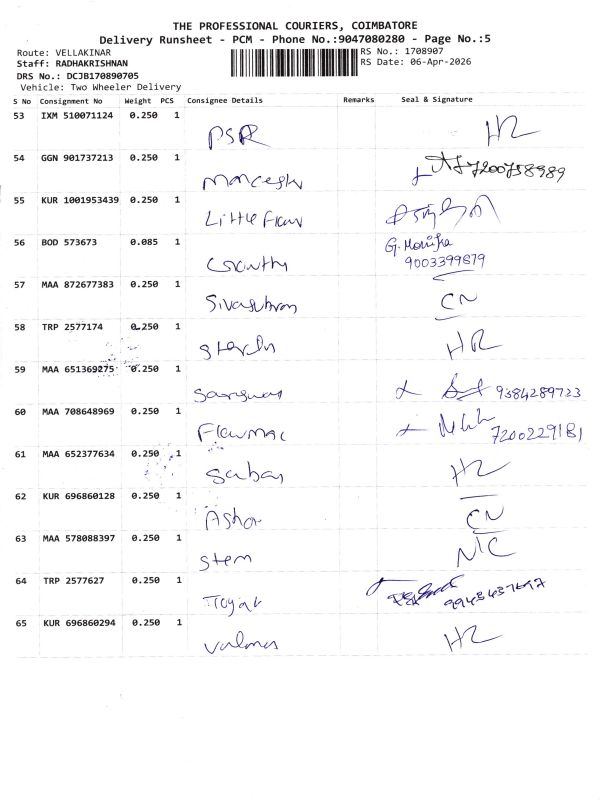 THE PROFESSIONAL COURIERS, COIMBATORE
Delivery Runsheet - PCM - Phone No.:9047080280 - Page No.:5
Route: VELLAKINAR
RS No.: 1708907
Staff: RADHAKRISHNAN
RS Date: 06-Apr-2026
DRS No.: DCJB170890705
Vehicle: Two Wheeler Delivery
S No Consignment No Weight PCS Consignee Details Remarks Seal & Signature
53 IXM 510071124 0.250 1
PSR
54 GGN 901737213 0.250 1
7200758989
55 KUR 1001953439 0.250 1
Little Flow
56 BOD 573673 0.085 1 G. Monika
9003399879
57 MAA 872677383 0.250 1
CN
58 TRP 2577174 0.250 1
HR
59 MAA 651369275 0.250 1
9384289723
60 MAA 708648969 0.250 1
Flowmac 7200229181
61 MAA 652377634 0.250 1
62 KUR 696860128 0.250 1
Ashor CN
63 MAA 578088397 0.250 1
Stem NIC
64 TRP 2577627 0.250 1
65 KUR 696860294 0.250 1